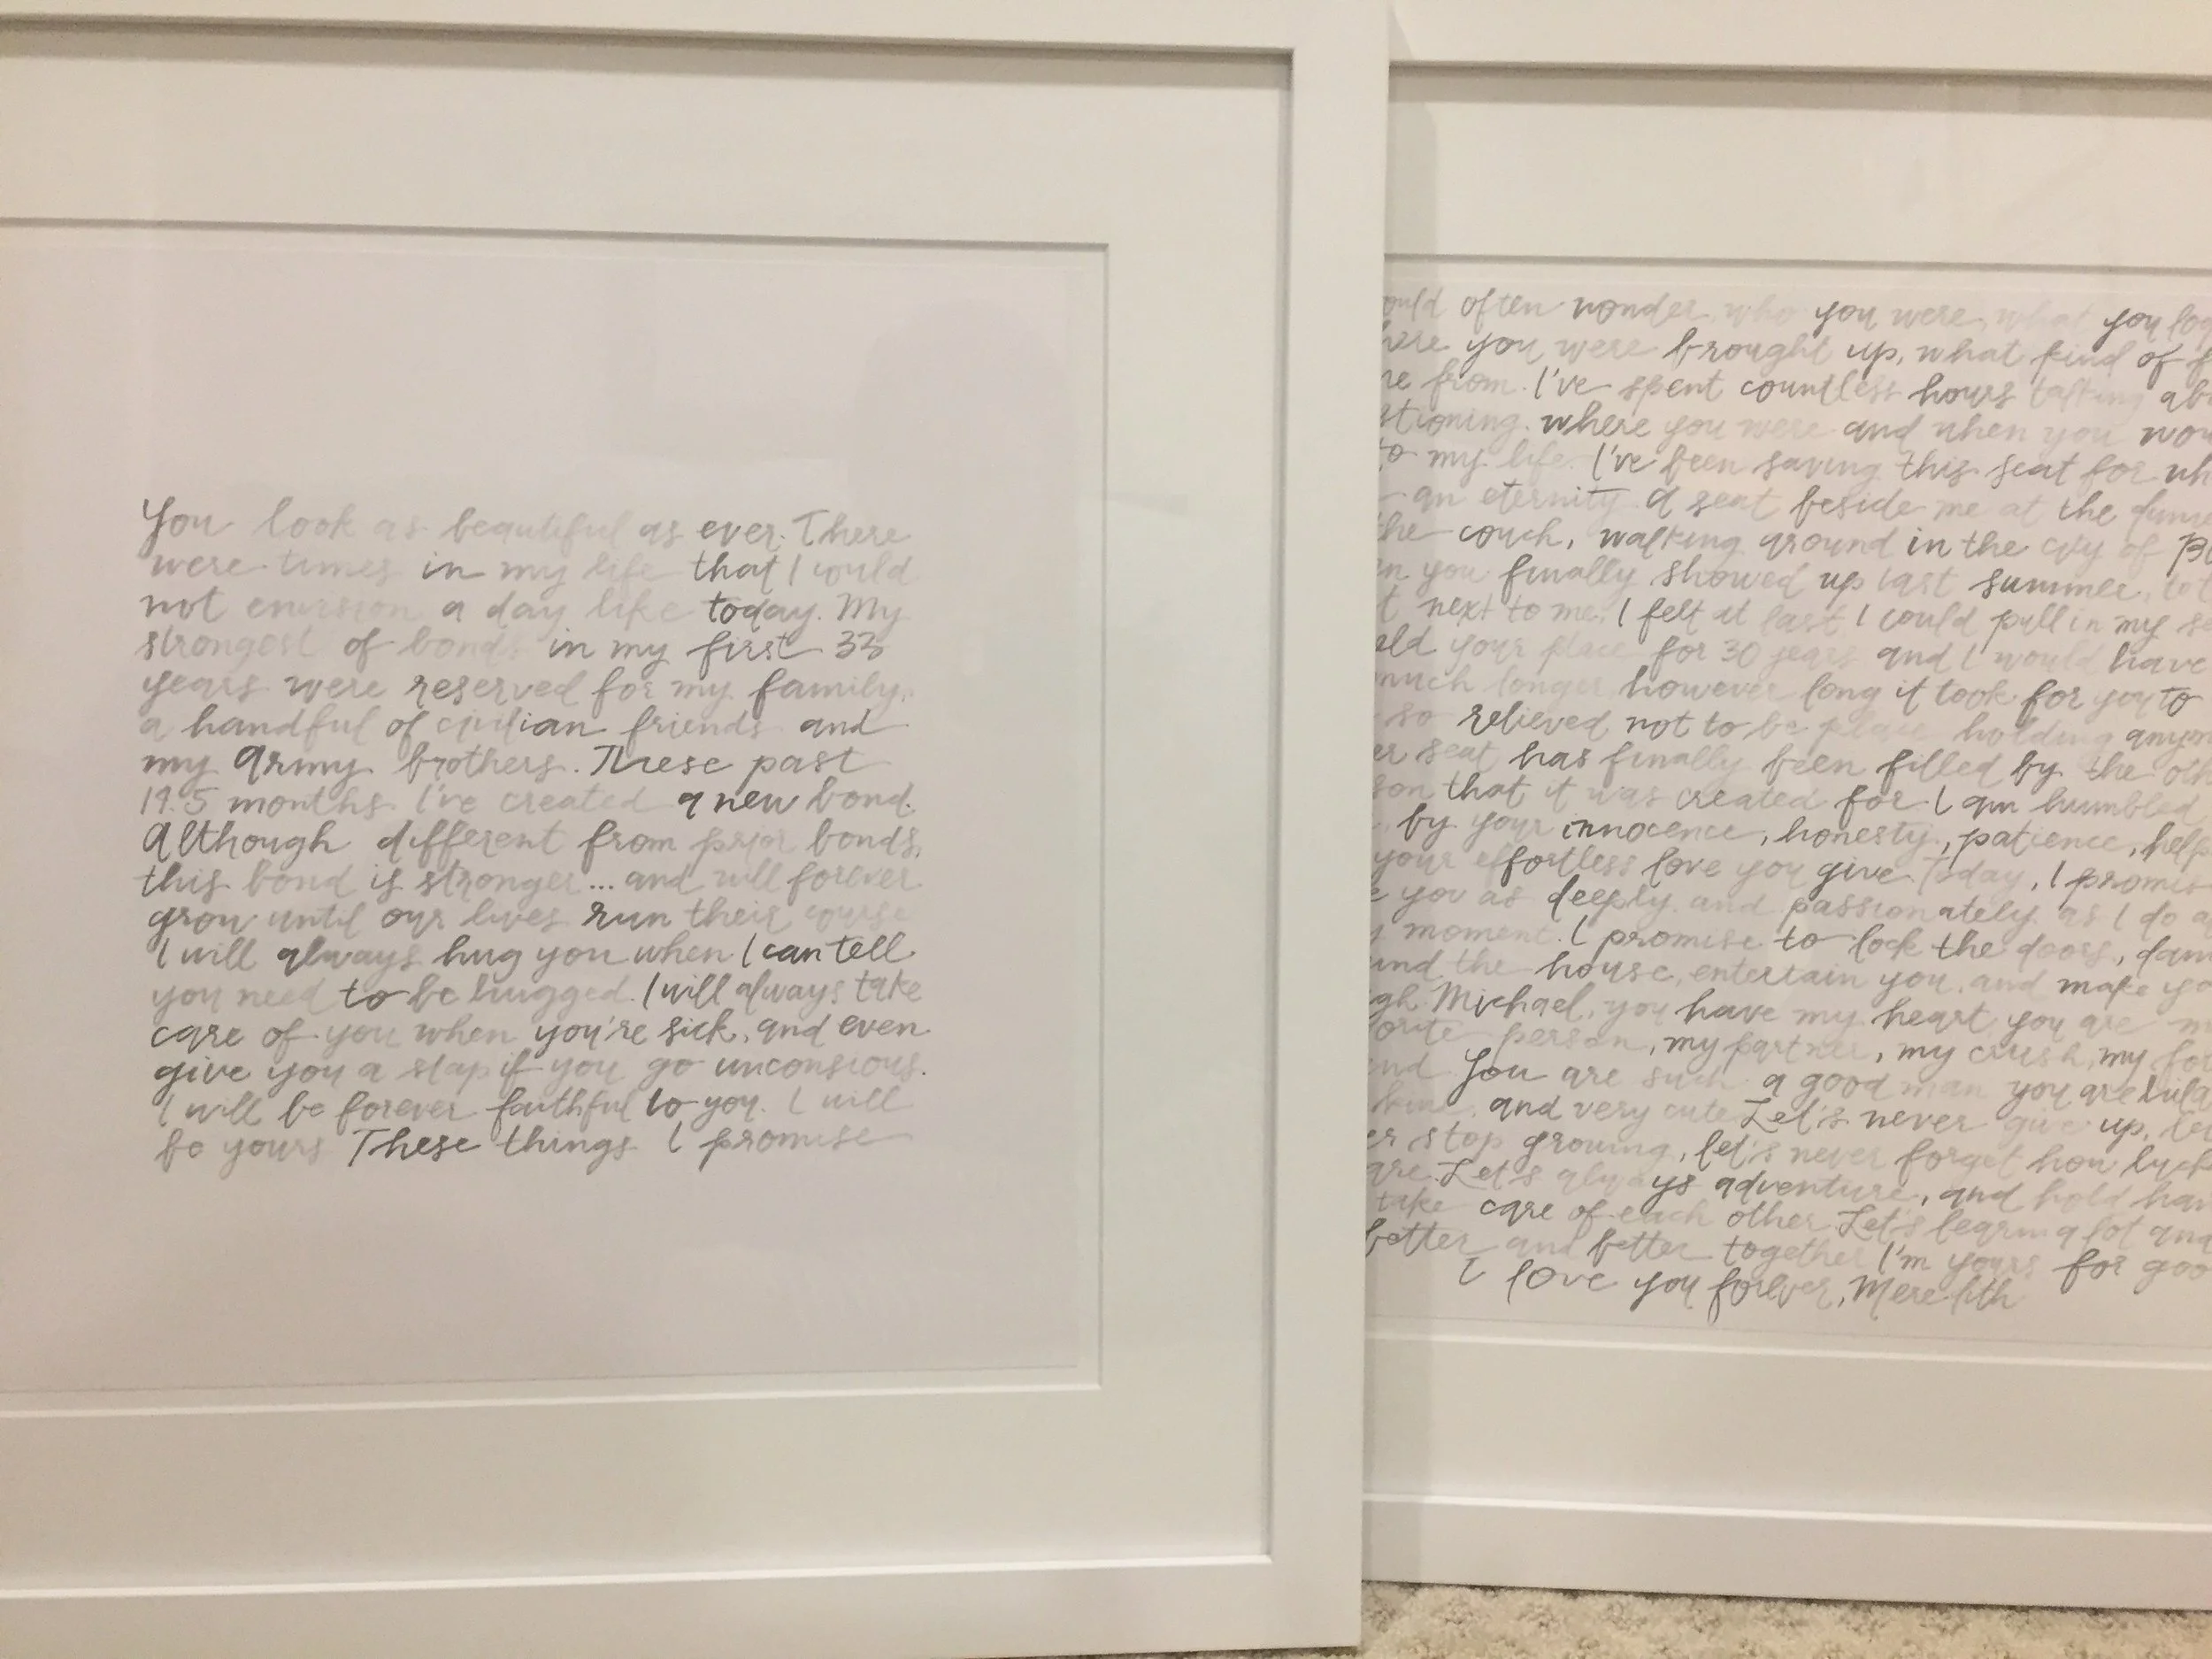 You look as beautiful as ever. There
were times in my life that I would
not envision a day like today. My
strongest of bonds in my first 33
years were reserved for my family,
a handful of civilian friends and
my army brothers. These past
19.5 months I've created a new bond.
Although different from prior bonds,
this bond is stronger... and will forever
grow until our lives run their course
I will always hug you when I can tell
you need to be hugged. I will always take
care of you when you're sick, and even
give you a slap if you go unconsious.
I will be forever faithful to you. I will
be yours These things I promise
ould often wonder who you were, what you loo
here you were brought up, what kind of f
me from. I've spent countless hours talking abo
stioning. where you were and when you wou
to my life. I've been saving this seat for wh
an eternity. A seat beside me at the dinne
the couch, walking around in the city of Bo
en you finally showed up last summer, to t
t next to me, I felt at last I could pull in my se
eld your place for 30 years and I would have
much longer, however long it took for you to
so relieved not to be place holding anymo
er seat has finally been filled by the oth
son that it was created for. I am humbled
by your innocence, honesty, patience, help
your effortless love you give. Today, I promis
e you as deeply and passionately as I do a
y moment. I promise to lock the doors, danc
und the house, entertain you, and make yo
gh. Michael, you have my heart you are m
orite person, my partner, my crush, my for
end. You are such a good man you are hila
kind, and very cute Let's never give up, let
er stop growing, let's never forget how luck
are. Let's always adventure, and hold han
take care of each other. Let's learn a lot and
better and better together I'm yours for goo
I love you forever, Meredith